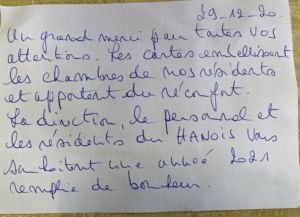 29_12_20.
Un grand merci pour toutes vos
attentions. Les cartes embellissent
les chambres de nos résidents
et apportent du réconfort.
La direction, le personnel et
les résidents du HANOIS vous
souhaitent une année 2021
remplie de bonheur.